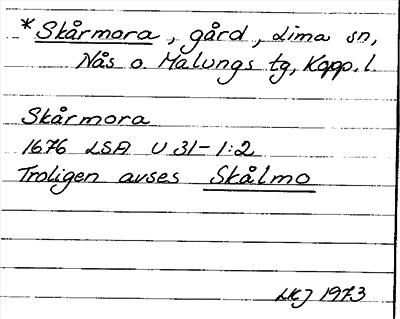 *Skårmora, gård, Lima sn,
Nås o. Malungs tg, Kopp. l.
Skårmora
1676 LSA U 31-1:2
Troligen avses Skålmo
1973